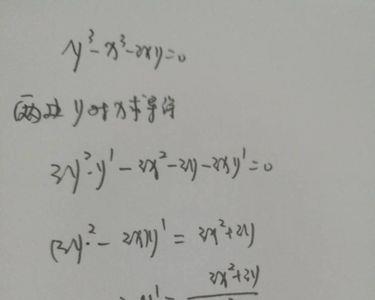 y³-x³-2xy=0
两边 y对x求导得
3y²·y'-3x²-2y-2xy'=0
(3y²-2x)y'=3x²+2y
y'=
3x²+2y